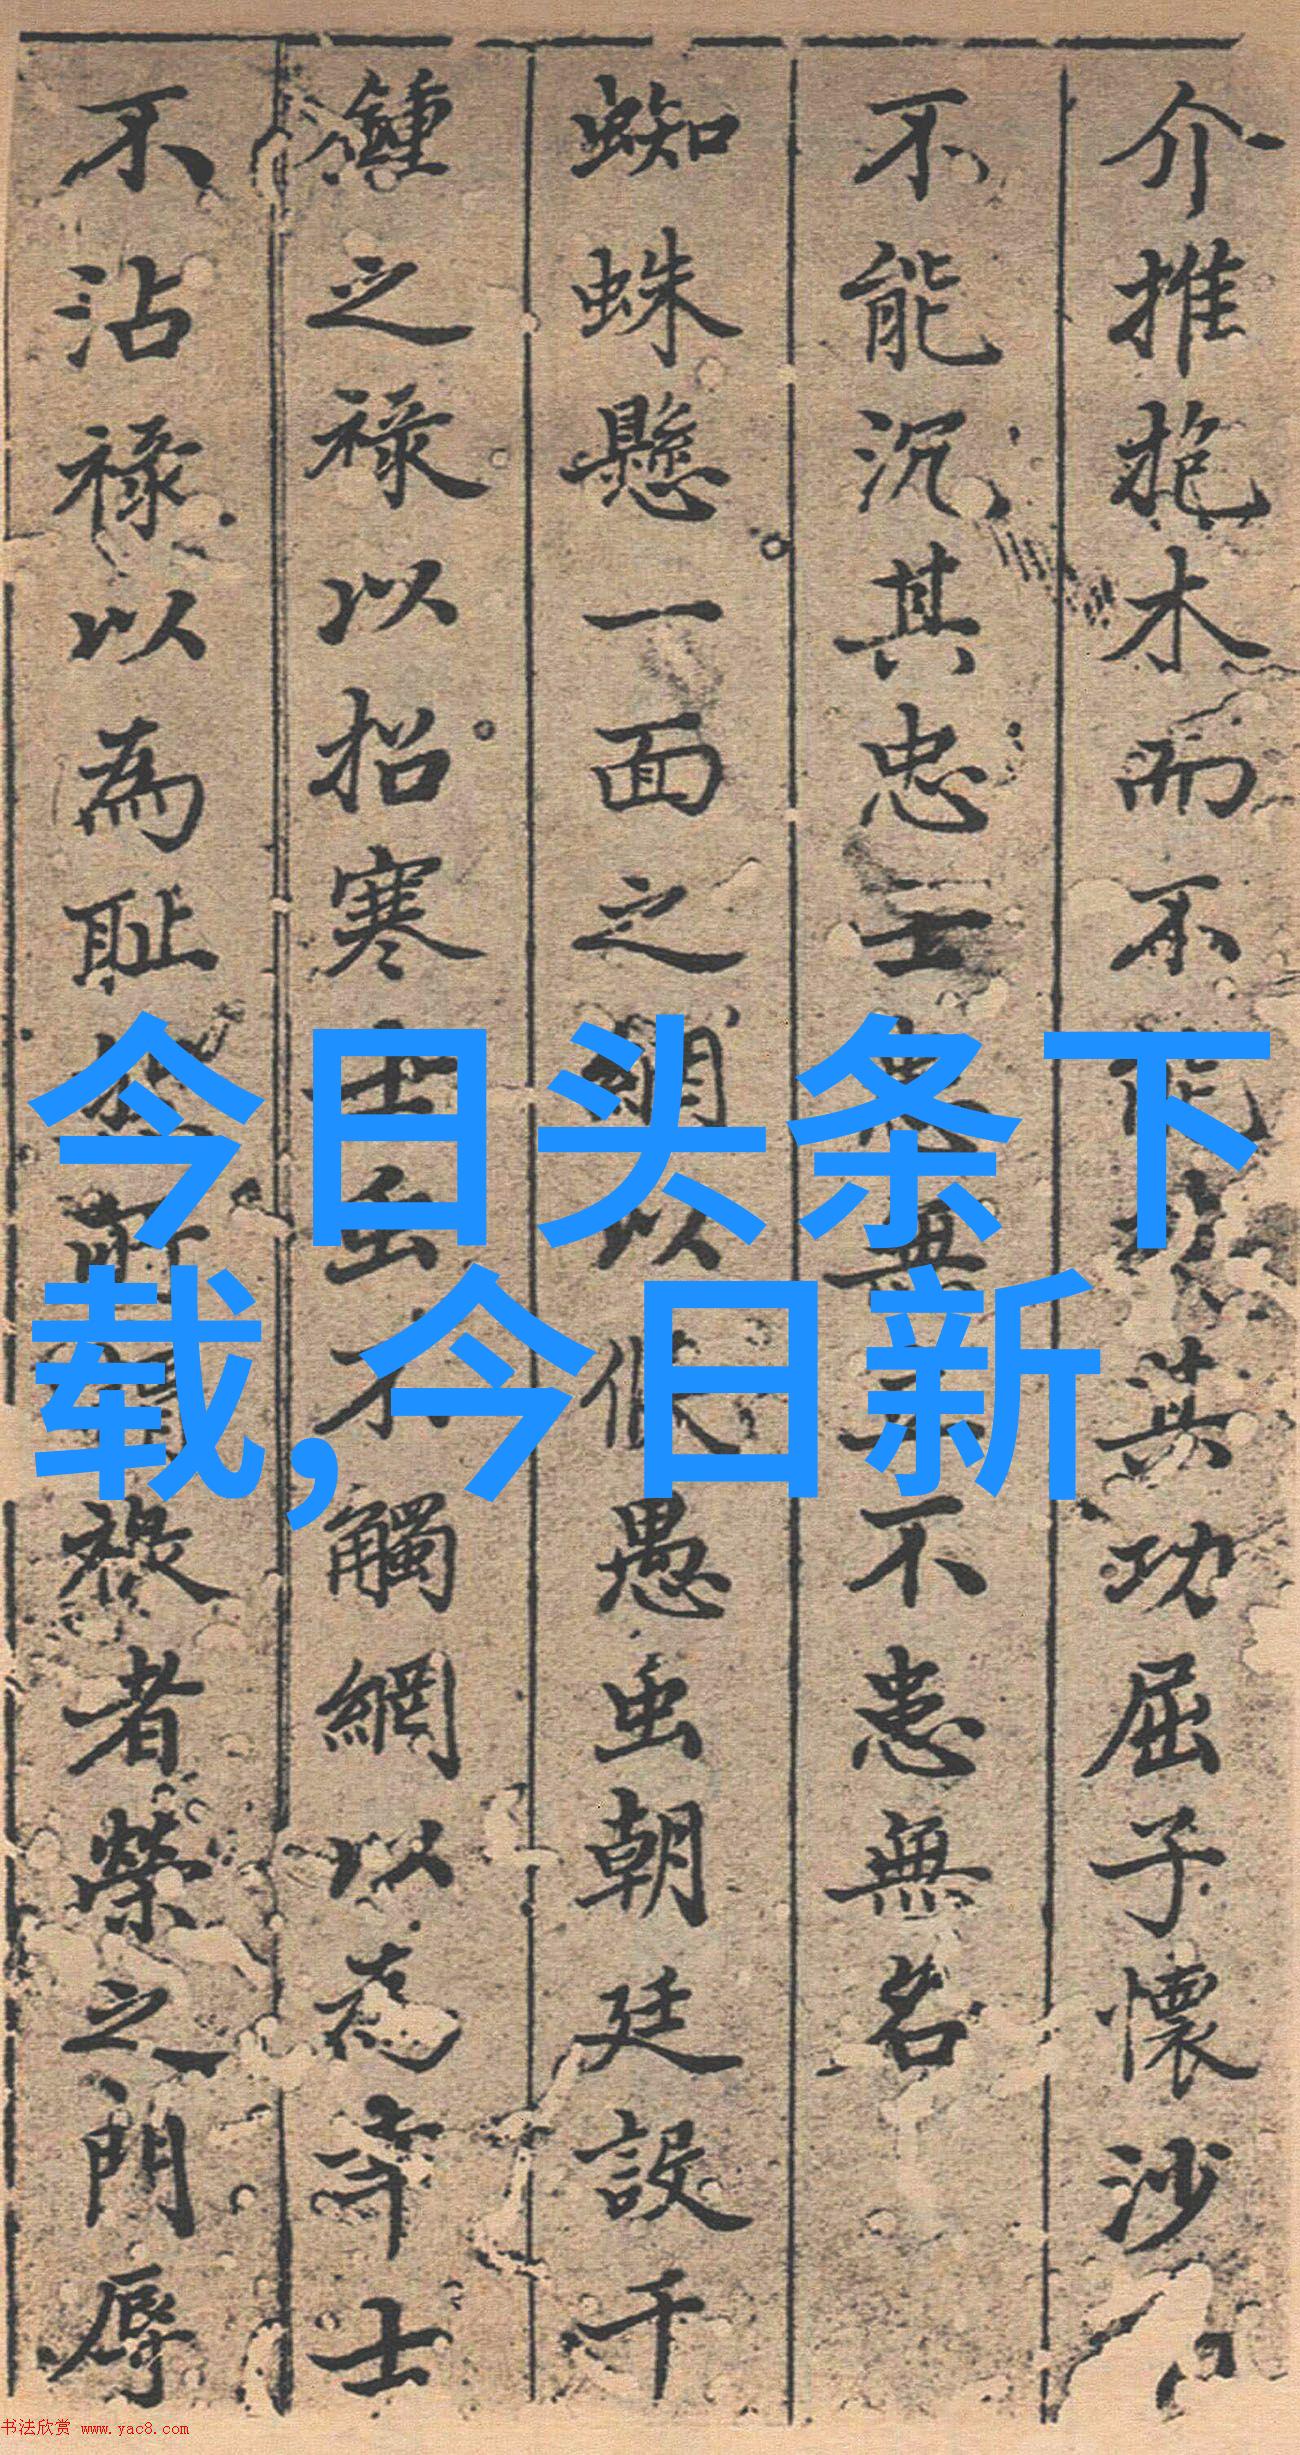 介推抱木而不能共功屈子懷沙
不能沉其忠士無不患無名
蜘蛛懸一面之網以供愚虫朝廷設千
鍾之祿以招寒士虫不觸網以為年士
不沾祿以為耻祿者榮之門辱
今日头条下
载,今日新
书法欣赏 www.yac8.com